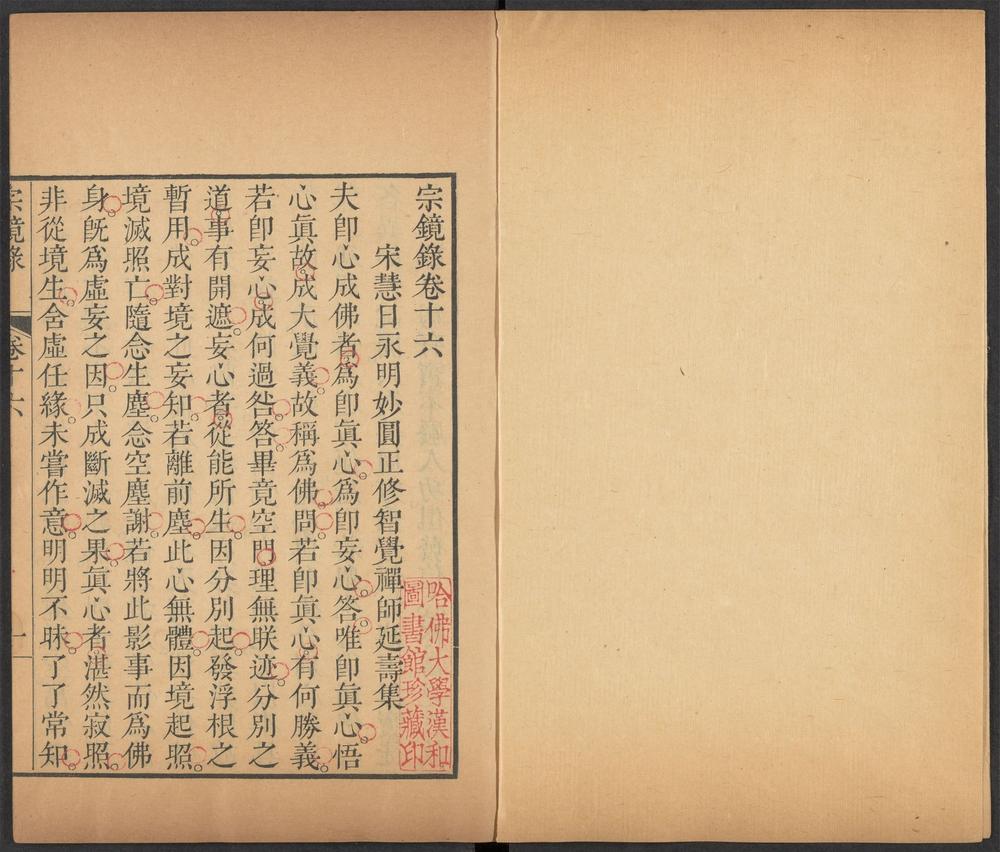 宗鏡錄卷十六
宋慧日永明妙圓正修智覺禪師延壽集
夫卽心成佛者爲卽眞心爲卽妄心答唯卽眞心悟
心眞故成大覺義故稱爲佛問若卽眞心有何勝義
若卽妄心成何過咎答畢竟空門理無联迹分別之
道事有開遮妄心者從能所生因分別起發浮根之
暫用成對境之妄知若離前塵此心無體因境起照
境滅照亡隨念生塵念空塵謝若將此影事而爲佛
身旣爲虛妄之因只成斷滅之果眞心者湛然寂照
非從境生含虛任緣未嘗作意明明不昧了了常知
宗鏡錄
卷十六
一
哈佛大學漢和
圖書館珍藏印